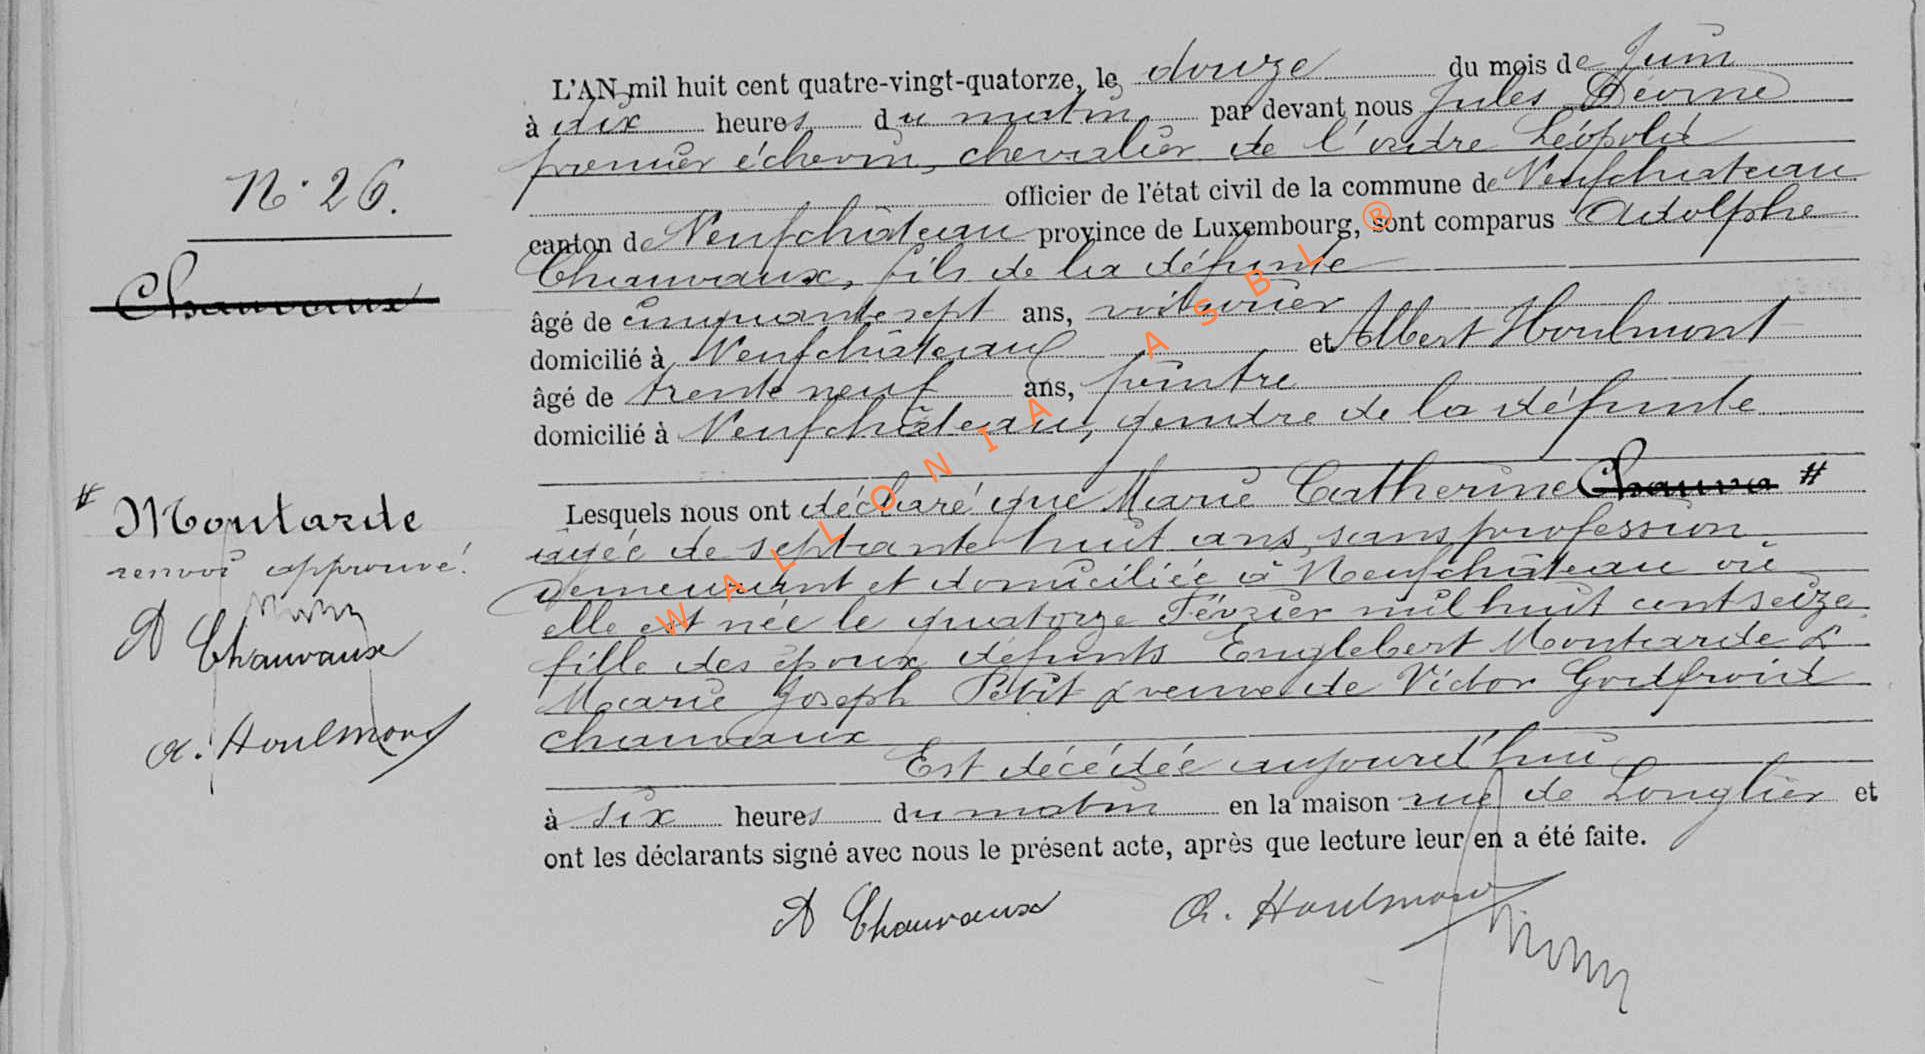 L'AN mil huit cent quatre-vingt-quatorze, le douze du mois de Juin
à dix heures du matin par devant nous Jules
premier échevin, chevalier de l'ordre Léopold
officier de l'état civil de la commune de Neufchateau
canton de Neufchâteau province de Luxembourg, sont comparus Adolphe
Chauvaux, fils de la défunte
âgé de cinquante sept ans, voiturier
domicilié à Neufchâteau et Albert Houlmont
âgé de trente neuf ans, peintre
domicilié à Neufchâteau, gendre de la défunte
Lesquels nous ont déclaré que Marie Catherine Chauva #
âgée de septante huit ans, sans profession
demeurant et domiciliée à Neufchâteau où
elle est née le quatorze Février mil huit cent seize
fille des époux défunts Englebert Moutarde &
Marie Joseph Petit & veuve de Victor Godfroid
Chauvaux
Est décédée aujourd'hui
à six heures du matin en la maison rue de Longlier et
ont les déclarants signé avec nous le présent acte, après que lecture leur en a été faite.
A Chauvaux A. Houlmont
N° 26.
Chauvaux
# Moutarde
renvoi approuvé!
A Chauvaux
A. Houlmont
WALLONIA ASBL ®